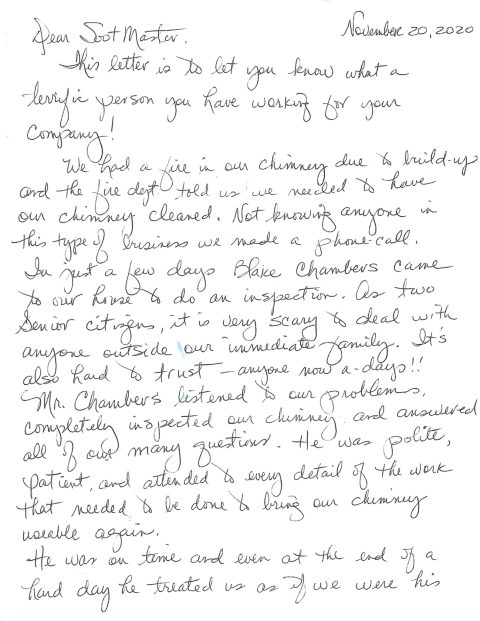 November 20, 2020
Dear Soot Master,
This letter is to let you know what a
terrific person you have working for your
Company!
We had a fire in our chimney due to build-up
and the fire dept told us we needed to have
our chimney cleaned. Not knowing anyone in
this type of business we made a phone call.
In just a few days Blake Chambers came
to our house to do an inspection. As two
Senior citizens, it is very scary to deal with
anyone outside our immediate family. It's
also hard to trust - anyone now a-days!!
Mr. Chambers listened to our problems,
completely inspected our chimney and answered
all of our many questions. He was polite,
patient, and attended to every detail of the work
that needed to be done to bring our chimney
useable again.
He was on time and even at the end of a
hard day he treated us as if we were his